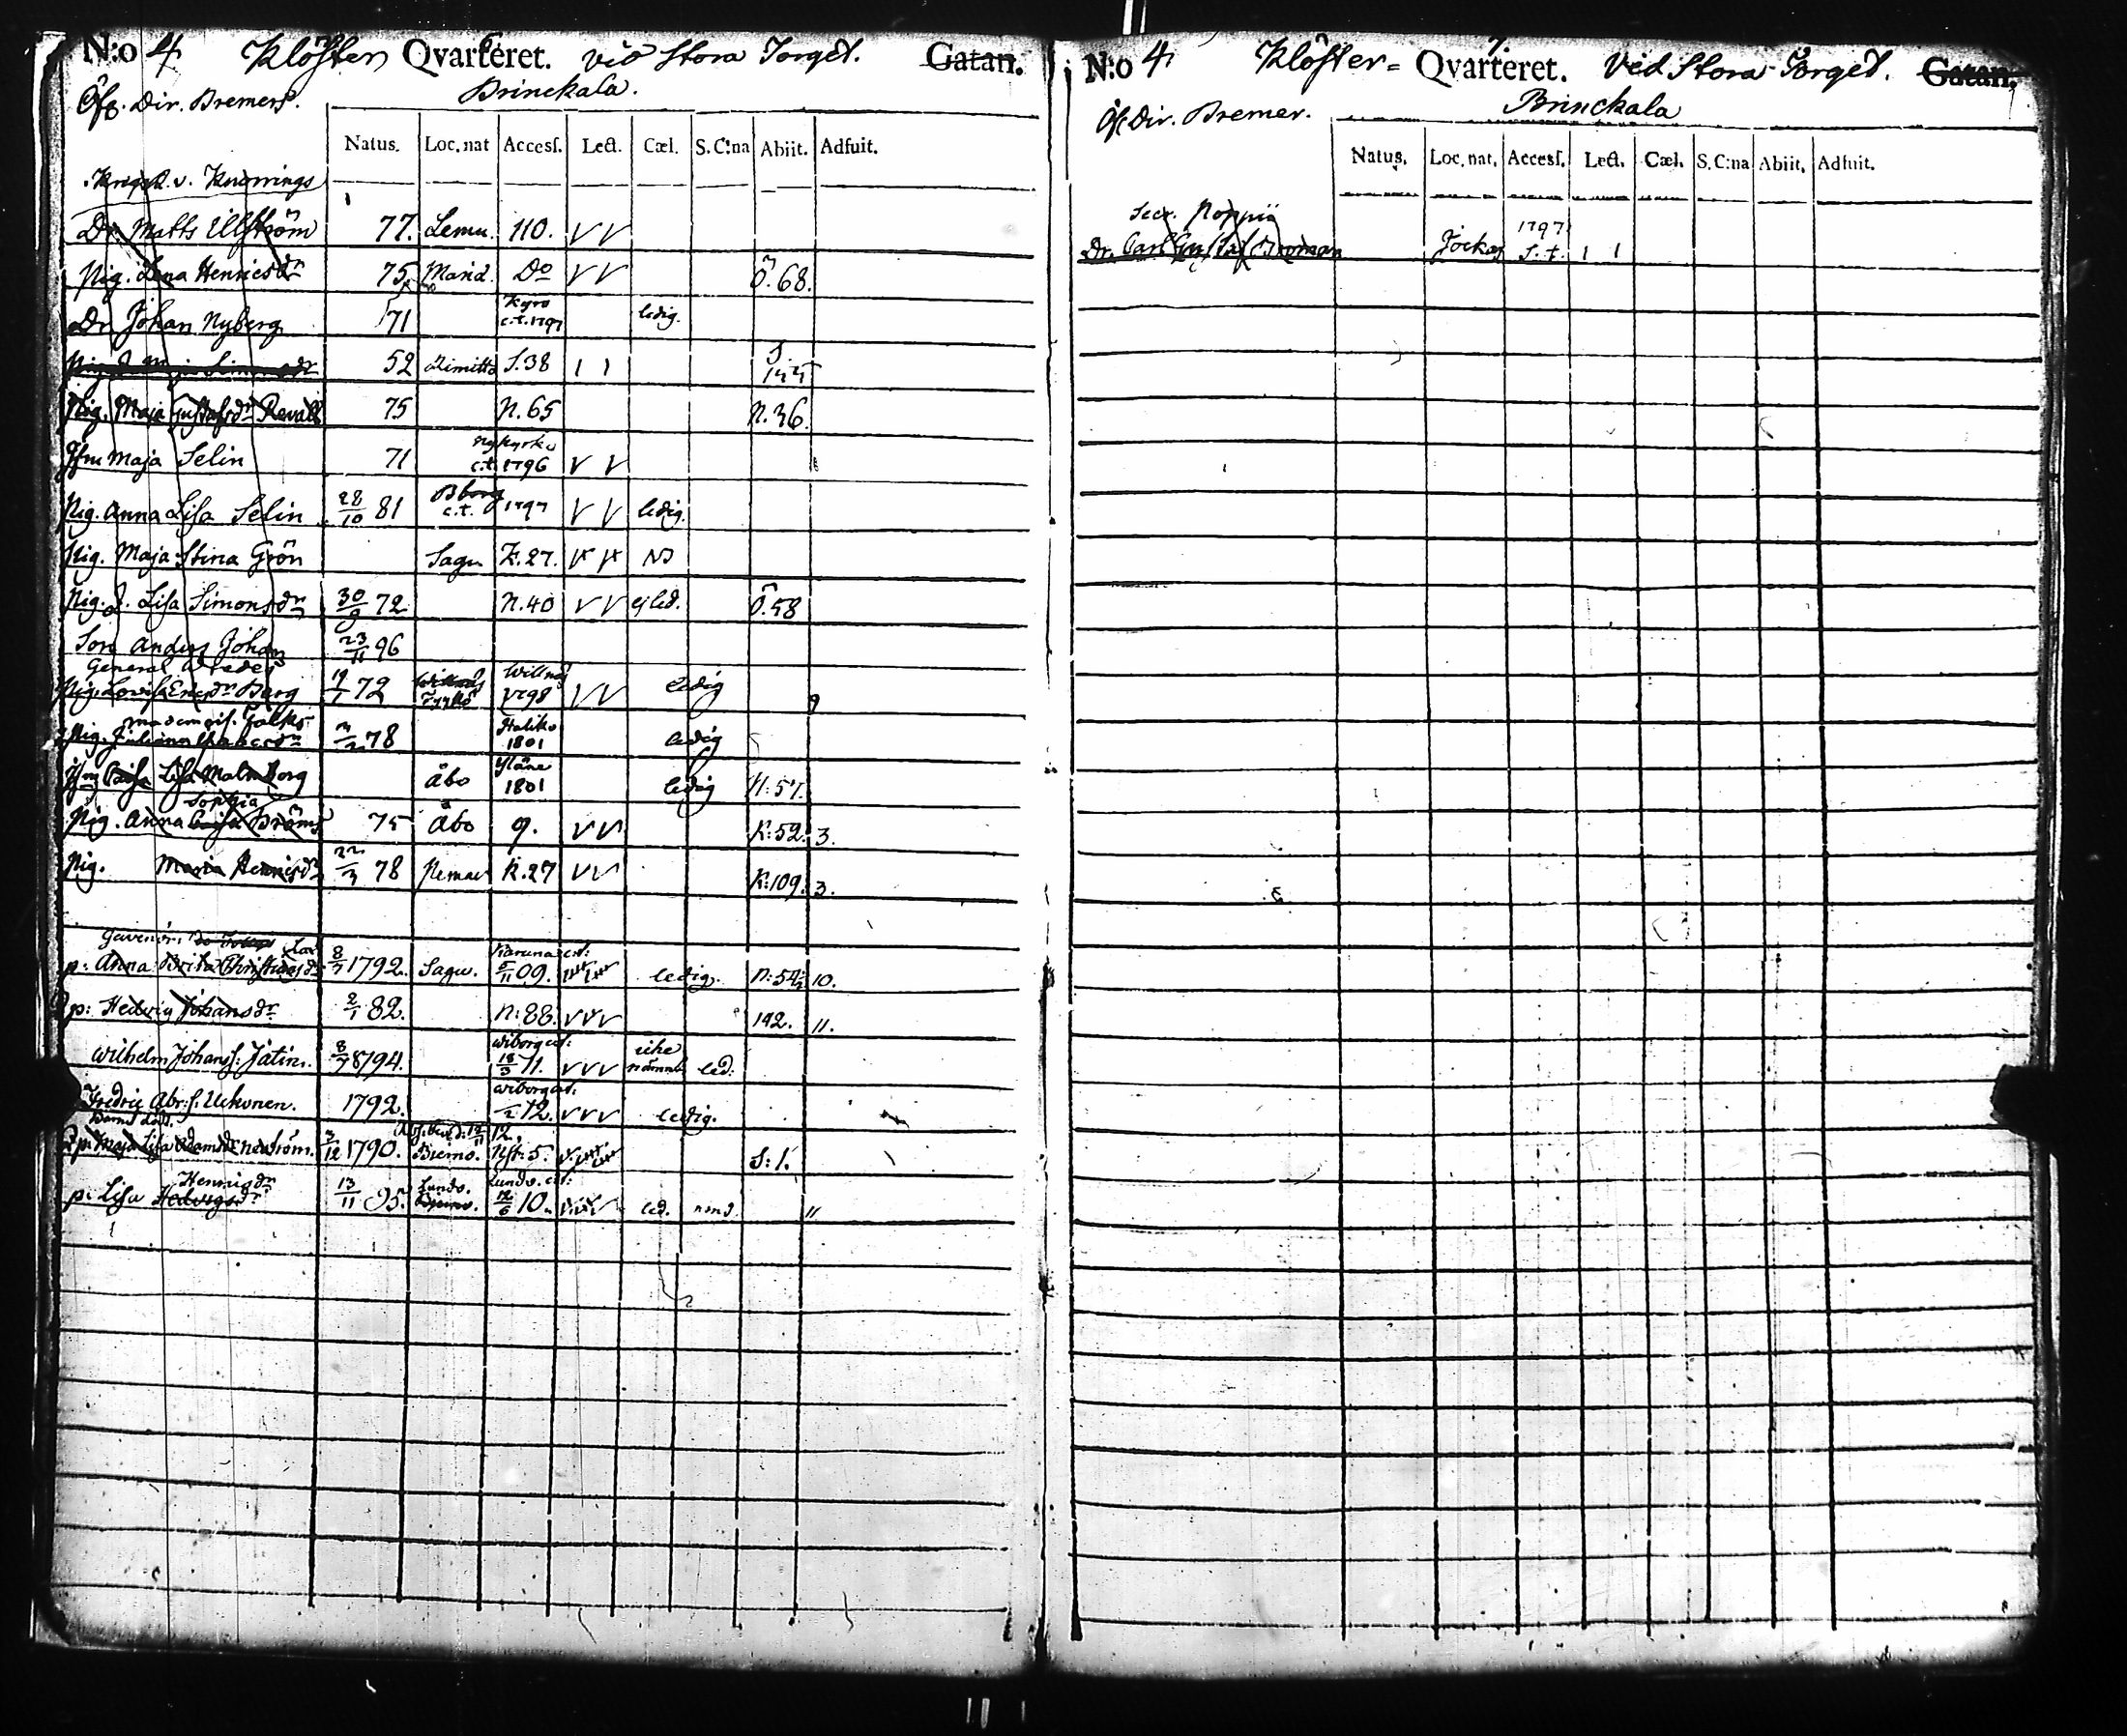 N:o 4 Klöster Qvarteret. vid Stora Torget. Gatan.
6.
Öfv. Dir. Bremers. Brinckala.
Natus. Loc. nat Accesſ. Lect. Cæl. S. C:na Abiit. Adfuit.
v. Knorrings
Dr. Matts Ellström 77. Lemu. 110. V V
Pig. Lena Henricsdr 75 Mand. Do V V Ö. 68.
Dr. Johan Nyberg 71 Kyro c.t. 1797 ledig.
52 Kimitto S. 38 I I S. 145
Pig. Maja Gustafsdr Revall 75 N. 65 N. 36.
Jfru Maja Selin 71 Nykyrko c.t. 1796 V V
Pig. Anna Lisa Selin 28/10 81 B borg c.t. 1797 V V ledig.
Pig. Maja Stina Grön Sagu K. 27.
Pig. Lisa Simonsdr 30/9 72 N. 40 V V ej led. Ö. 58
Son Anders Johan 23/11 96
General Wredes
Pig. Lovisa Ericsdr Berg 19/1 72 Willnäs 1798 V V ledig 9
Mademois. Falks
Pig. Juliana 78 Haliko 1801 ledig
Jfru Lisa Malmborg Åbo Yläne 1801 ledig N: 57.
Sophia
Pig. Anna Ström 75 Åbo 9. V V K: 52. 3.
Pig. Maria Henricsdr 22/3 78 Pemar K. 27 V V K: 109. 3.
p: Anna Brita Christiansdr 8/7 1792. Sagu. Karuna c.t: 5/11 09. ledig. N: 54 10.
p: Hedvig Johansdr 2/1 82. N: 88. V V V 142. 11.
Wilhelm Johanss: Jätin. 8/7 8794. Wiborg c.t: 18/3 11. V V V icke nämnt led.
Fredric Abr: s. Uckonen. 1792. Wiborg c.t: 12. V V V ledig.
p: Maja Lisa Adamsdr 3/12 1790. Bjerno. 12. N: 5. S: 1.
Henricsdr
p. Lisa Hedvigsdr 13/11 95. Lundo. Lundo. c.t: 12/6 10. led. 11

N:o 4 Klöster- Qvarteret. Vid Stora Torget. Gatan.
7.
Öf. Dir. Bremer. Brinckala
Natus. Loc. nat. Accesſ. Lect. Cæl. S. C:na Abiit. Adfuit.
Secr. Poppii
Dr. Carl Gustaf Broman Jockas 1797 S. t. I I